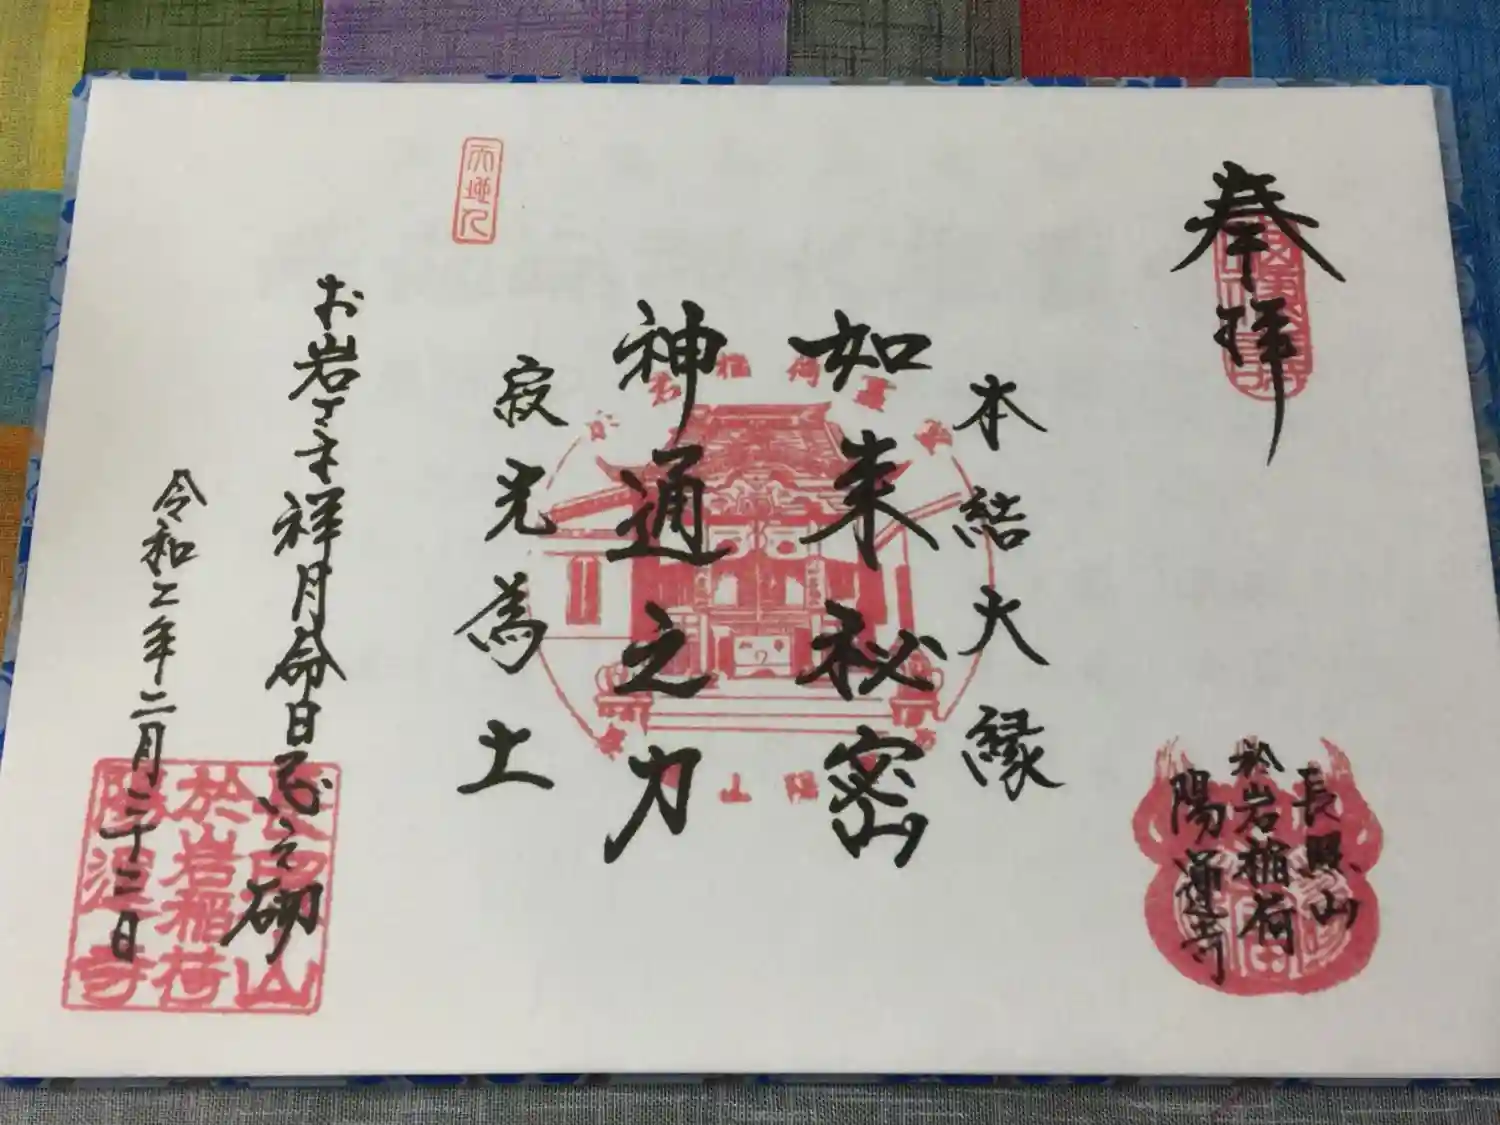 奉拝
長照山
於岩稲荷
陽運寺
本結大縁
如来秘密
神通之力
寂光為土
お岩さま祥月命日忌之砌
令和二年二月二十二日
長照山
於岩稲荷
陽運寺